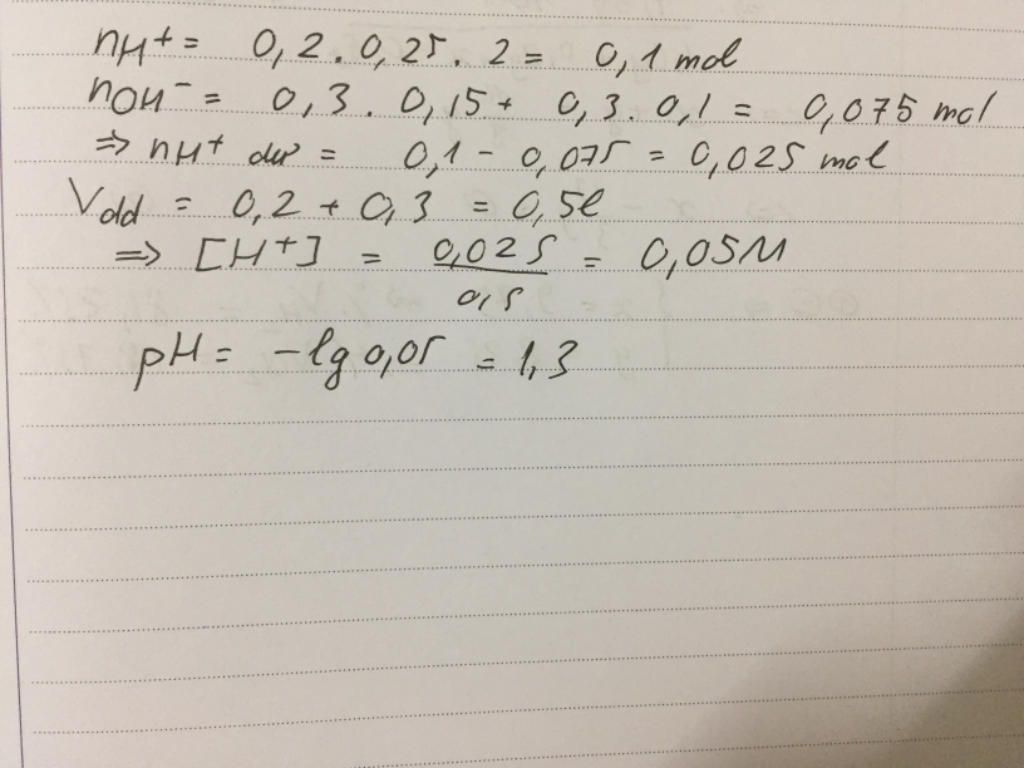 nH+ = 0,2 . 0,25 . 2 = 0,1 mol
nOH- = 0,3 . 0,15 + 0,3 . 0,1 = 0,075 mol
=> nH+ dư = 0,1 - 0,075 = 0,025 mol
Vdd = 0,2 + 0,3 = 0,5l
=> [H+] = 0,025/0,5 = 0,05M
pH = -lg 0,05 = 1,3